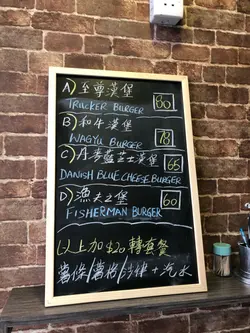 A) 至尊漢堡
TRUCKER BURGER 80
B) 和牛漢堡
WAGYU BURGER 78
C) 丹麥藍芝士漢堡 65
DANISH BLUE CHEESE BURGER
D) 漁夫之堡 60
FISHERMAN BURGER
以上加$20轉套餐
薯條/薯格/沙律 + 汽水